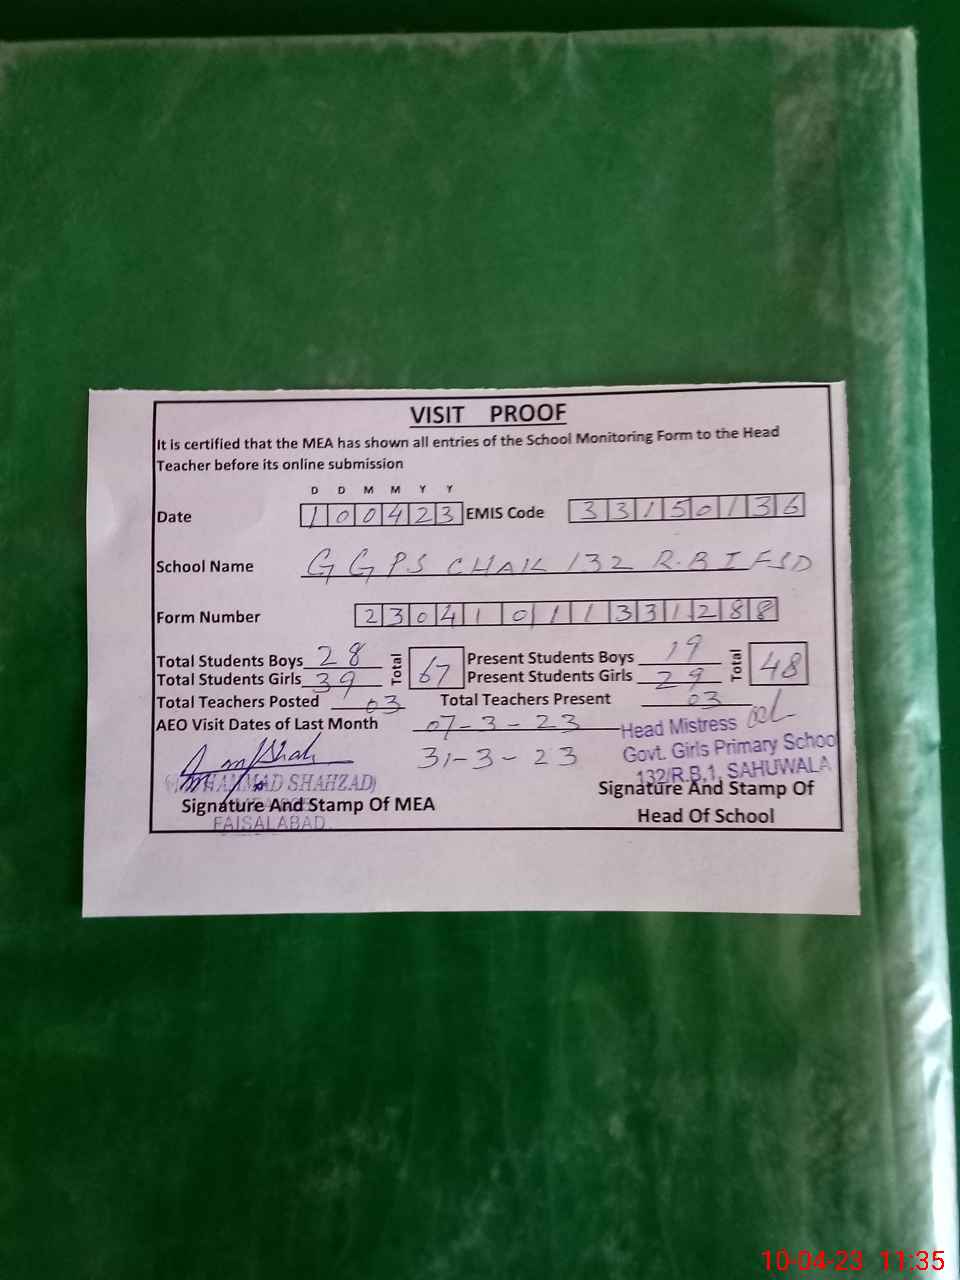 VISIT PROOF
It is certified that the MEA has shown all entries of the School Monitoring Form to the Head
Teacher before its online submission
D D M M Y Y
Date 100423 EMIS Code 33150136
School Name GGPS CHAK 132 R.B I FSD
Form Number 23041011331288
Total Students Boys 28 Total 67 Present Students Boys 19 Total 48
Total Students Girls 39 Present Students Girls 29
Total Teachers Posted 03 Total Teachers Present 03
AEO Visit Dates of Last Month 07-3-23
31-3-23
Head Mistress
Govt. Girls Primary School
132/R.B,1, SAHUWALA
(MUHAMMAD SHAHZAD)
Signature And Stamp Of MEA
FAISALABAD.
Signature And Stamp Of
Head Of School
10-04-23 11:35